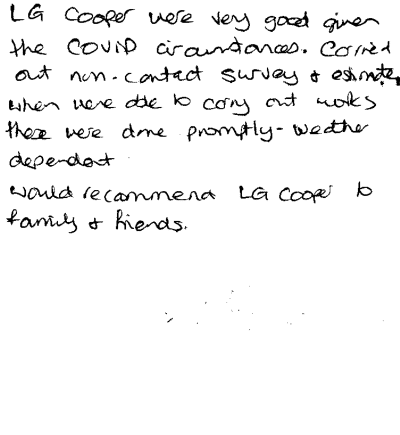 LG Cooper were very good given
the COVID circumstances. Carried
out non-contact survey & estimate,
when were able to carry out works
these were done promptly - weather
dependent
would recommend LG Cooper to
family & friends.